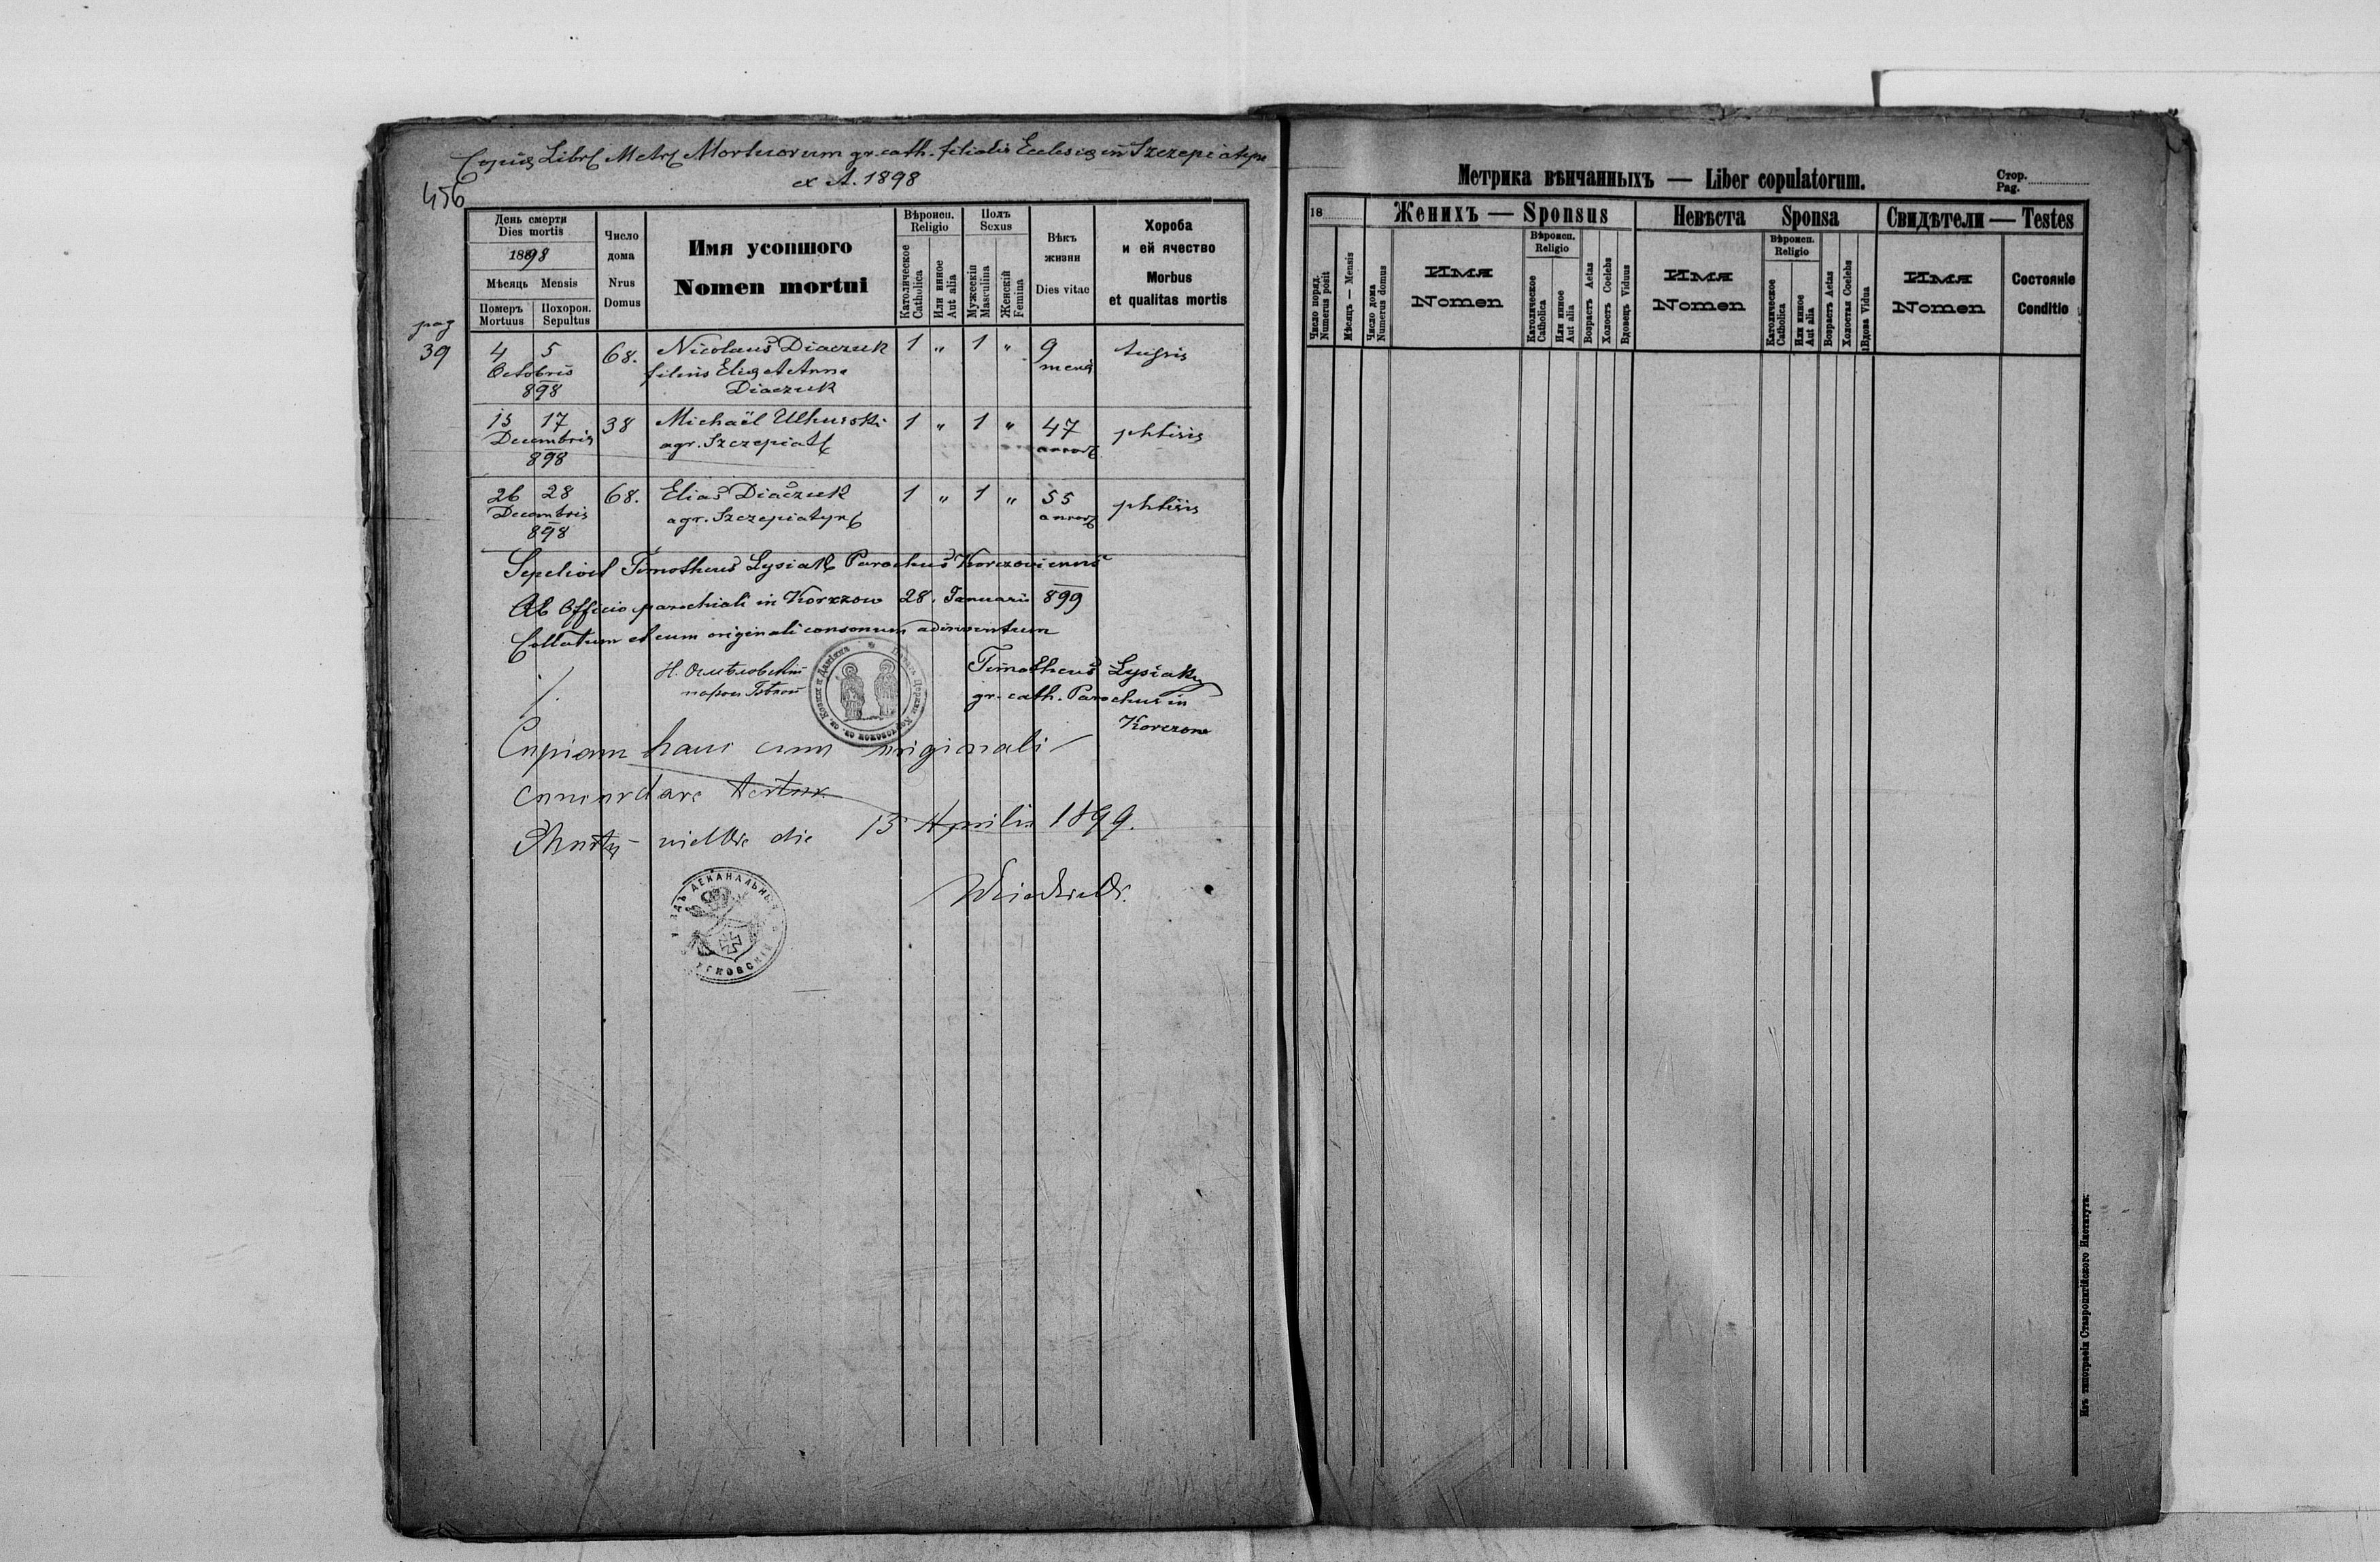 Copia Libri Metr Mortuorum gr. cath. filialis Ecclesiæ in Szczepiatyn
ex A. 1898
456
День смерти
Dies mortis
1898
Мѣсяць Mensis
Померъ
Mortuus
Похорон.
Sepultus
Число
дома
Nrus
Domus
Имя усопшого
Nomen mortui
Вѣроисп.
Religio
Католическое
Catholica
Или инное
Aut alia
Полъ
Sexus
Мужескій
Masculina
Женскій
Femina
Вѣкъ
жизни
Dies vitae
Хороба
и ей ячество
Morbus
et qualitas mortis
pag
39
4 5 68. Nicolaus Diaczuk 1 „ 1 „ 9 tussis
Octobris filius Eliæ et Anna
898 Diaczuk
15 17 38 Michaël Uhurski 1 „ 1 „ 47 phtisis
Decembris agr. Szczepiat
898
26 28 68. Elias Diaczuk 1 „ 1 „ 55 phtisis
Decembris agr. Szczepiatyn
898
Sepelivit Timotheus Lysiak Parochus Korczoviensis
Ab Officio parochiali in Korczow 28. Januarii 899
Collatum et cum originali consonum adinventum
Timotheus Lysiak
gr. cath. Parochus in
Korczow
Copiam hanc cum originali
concordare testor.
die 15 Aprilis 1899.
ДЕКАНАЛЬНЫЙ
Метрика вѣнчанныхъ — Liber copulatorum.
Стор.
Pag.
18
Число поряд.
Numerus posit
Мѣсяць — Mensis
Число дома
Numerus domus
Женихъ — Sponsus
Имя
Nomen
Вѣроисп.
Religio
Католическое
Catholica
Или инное
Aut alia
Возрастъ Aetas
Холостъ Coelebs
Вдовецъ Viduus
Невѣста Sponsa
Имя
Nomen
Вѣроисп.
Religio
Католическое
Catholica
Или инное
Aut alia
Возрастъ Aetas
Холостая Coelebs
Вдова Vidua
Свидѣтели — Testes
Имя
Nomen
Состояніе
Conditio
Изъ типографіи Ставропигійского Института.